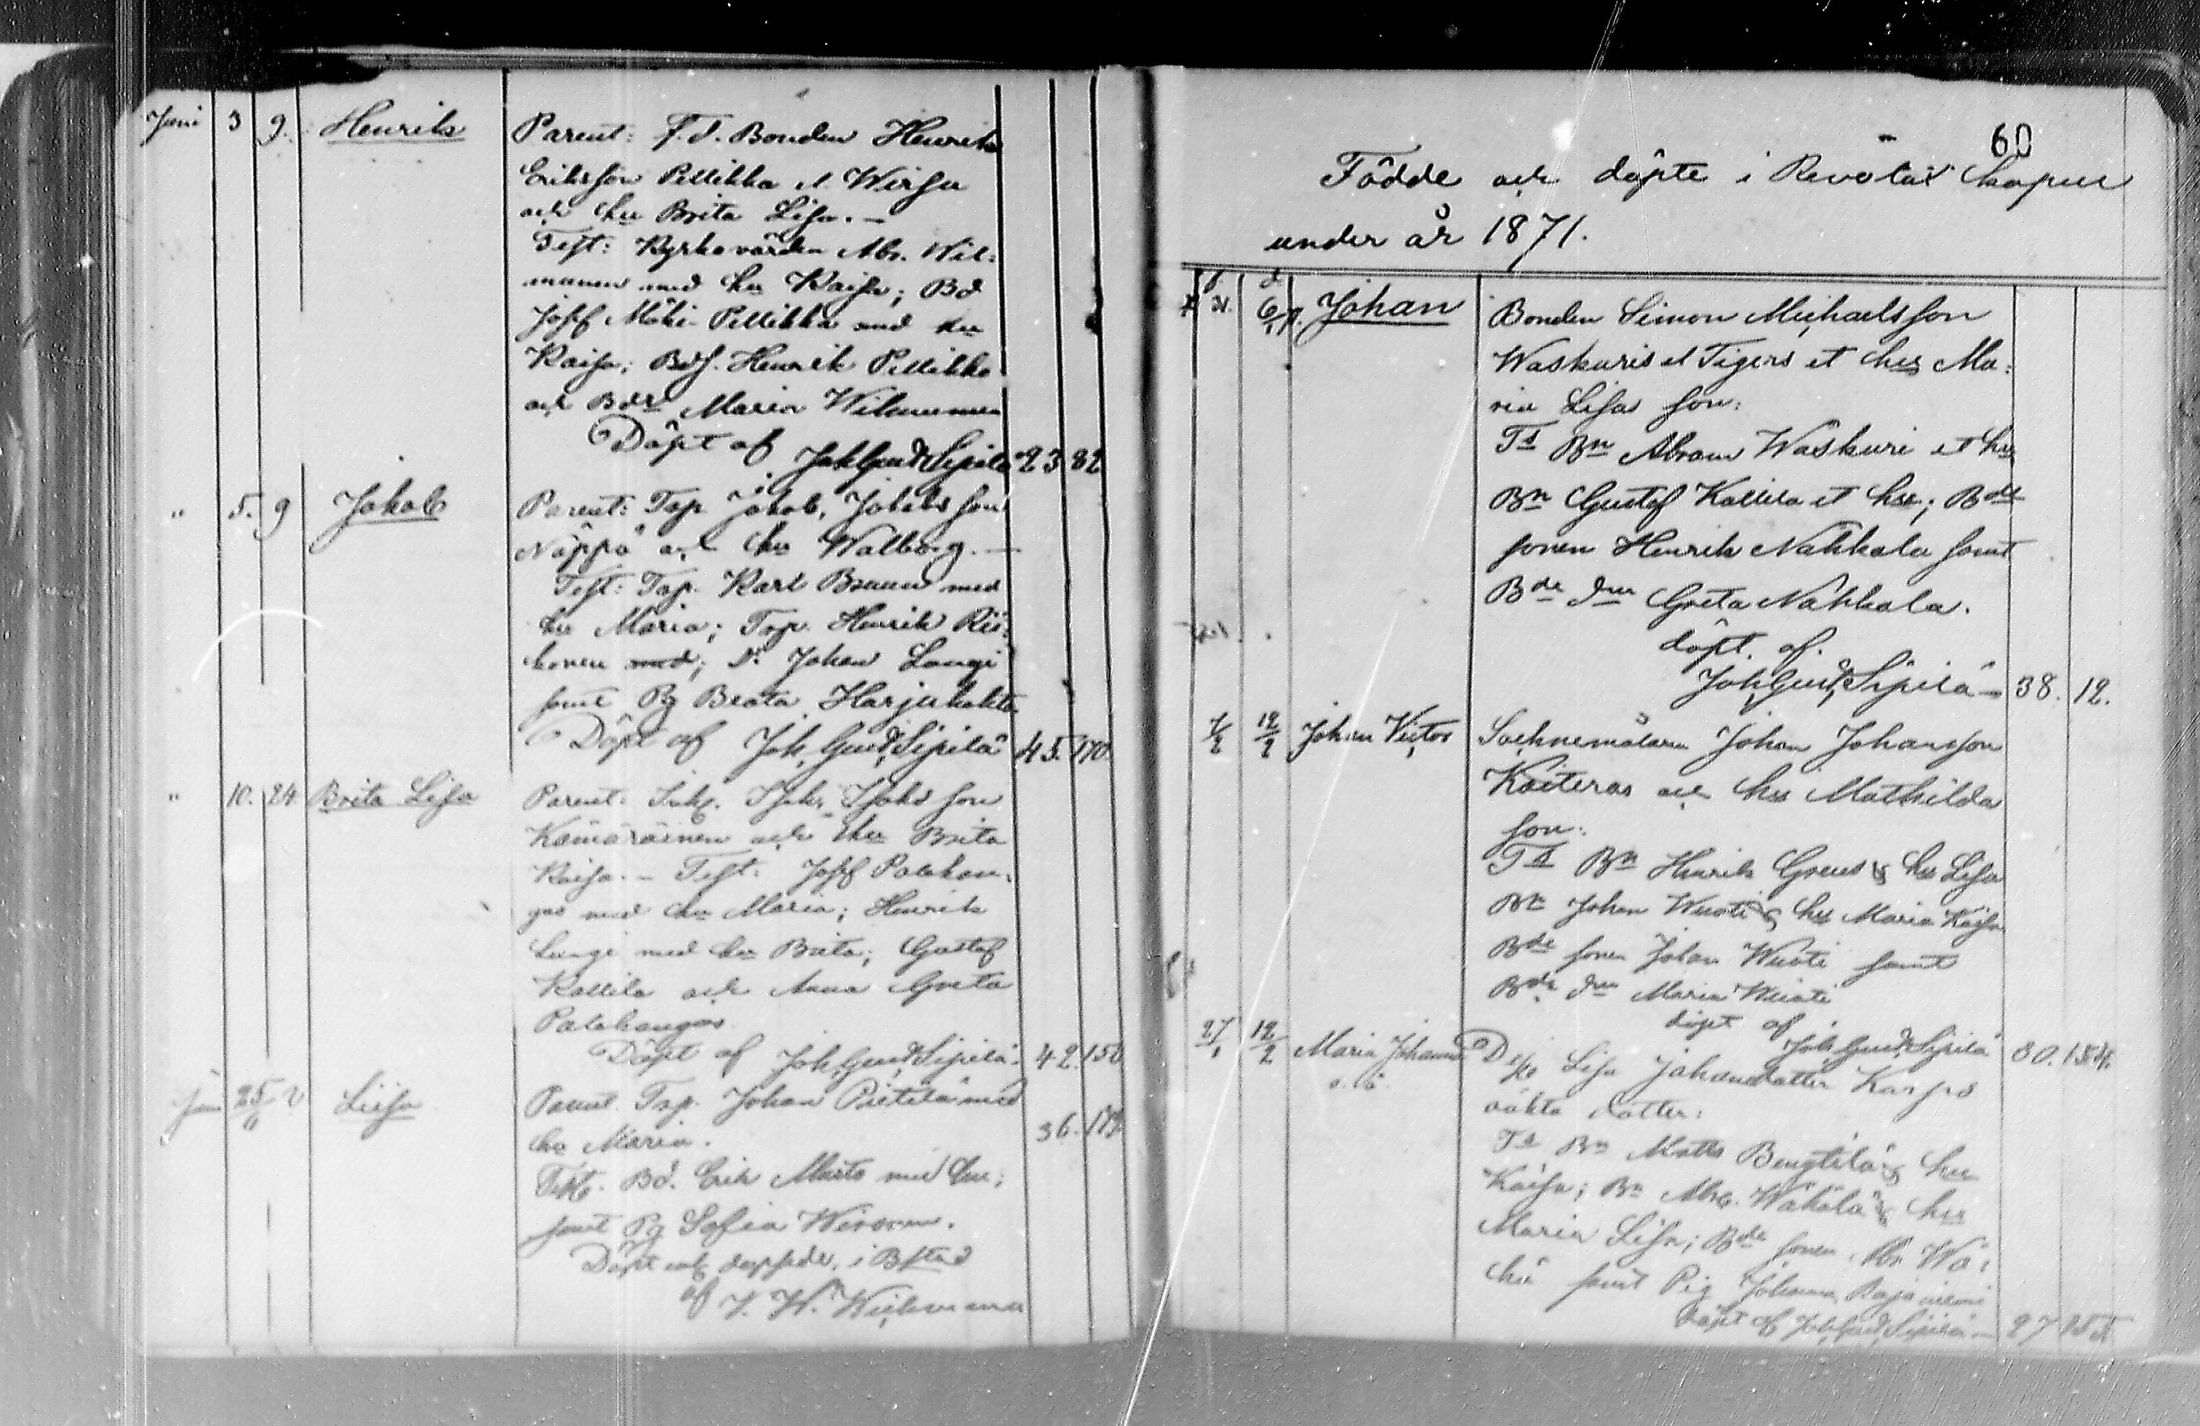 Juni 3 9. Henrik Parent: F. d. Bonden Henrik
Eriksson Pellikka l. Wirsu
och hu Brita Lisa. —
Test: Kyrkovärden Abr. Wil:
munen med hu Kaisa; Bd
Josef Mäki-Pellikka med hu
Kaisa; Bds. Henrik Pellikka
och Bdr Maria Wilmunen
Döpt af Joh Gud Sipilä 23 82
" 5. 9 Jakob Parent: Tsp. Jakob, Jakobsson
Näppä och hu Walborg. —
Test: Tsp. Karl Bruun med
hu Maria; Tsp. Henrik Rii:
konen med; Dr. Johan Laugi
samt Pg Beata Harjukakko
Döpt af Joh. Gud. Sipilä 45. 170.
" 10. 24 Brita Lisa Parent: Inh. Isak, Isaksson
Kämäräinen och hu Brita
Kaisa. — Test. Josef Palokan:
gas med hu Maria; Henrik
Laugi med hu Brita; Gustaf
Kallila och Anna Greta
Palokangas.
Döpt af Joh. Gud. Sipilä. 42. 150
25/6 Liisa Parent. Tsp. Johan Pietilä med
hu Maria. 36.
Test. Bd. Erik Marto med hu;
samt Pg Sofia
Döpt i
af V. H. Wichmann
60
Födde och döpte i Revolax kapell
under år 1871.
f d
Johan Bonden Simon Michaelsson
Waskuris et Tigers et hus Ma:
ria Lisas son:
Ts Bn Abram Waskuri et hu
Bn Gustaf Kallila et hu; Bde
sonen Henrik Nahkala samt
Bde dn Greta Nahkala.
döpt. af.
Joh. Gud. Sipilä — 38. 12.
7/2 12/2 Johan Victor Sochnemålaren Johan Johansson
Koiteras och hus Mathilda
son.
Ts Bn Henrik Greus & hu Lisa
Bn Johan Wuoti & hu Maria Kaisa
Bde sonen Johan Wuoti samt
Bde dn Maria Wuoti
döpt af
Joh Gud. Sipilä 80.
27/1 12/2 Maria Johanna o. ä. Lisa Johansdotter Karpas
oäkta dotter:
Ts Bn Matts Bengtilä & hu
Kaisa; Bn Abr. Wähälä & hu
Maria Lisa; Bde sonen Abr. Wä:
hä samt Pig Johanna Rajaniemi
döpt af Joh. Gud. Sipilä —